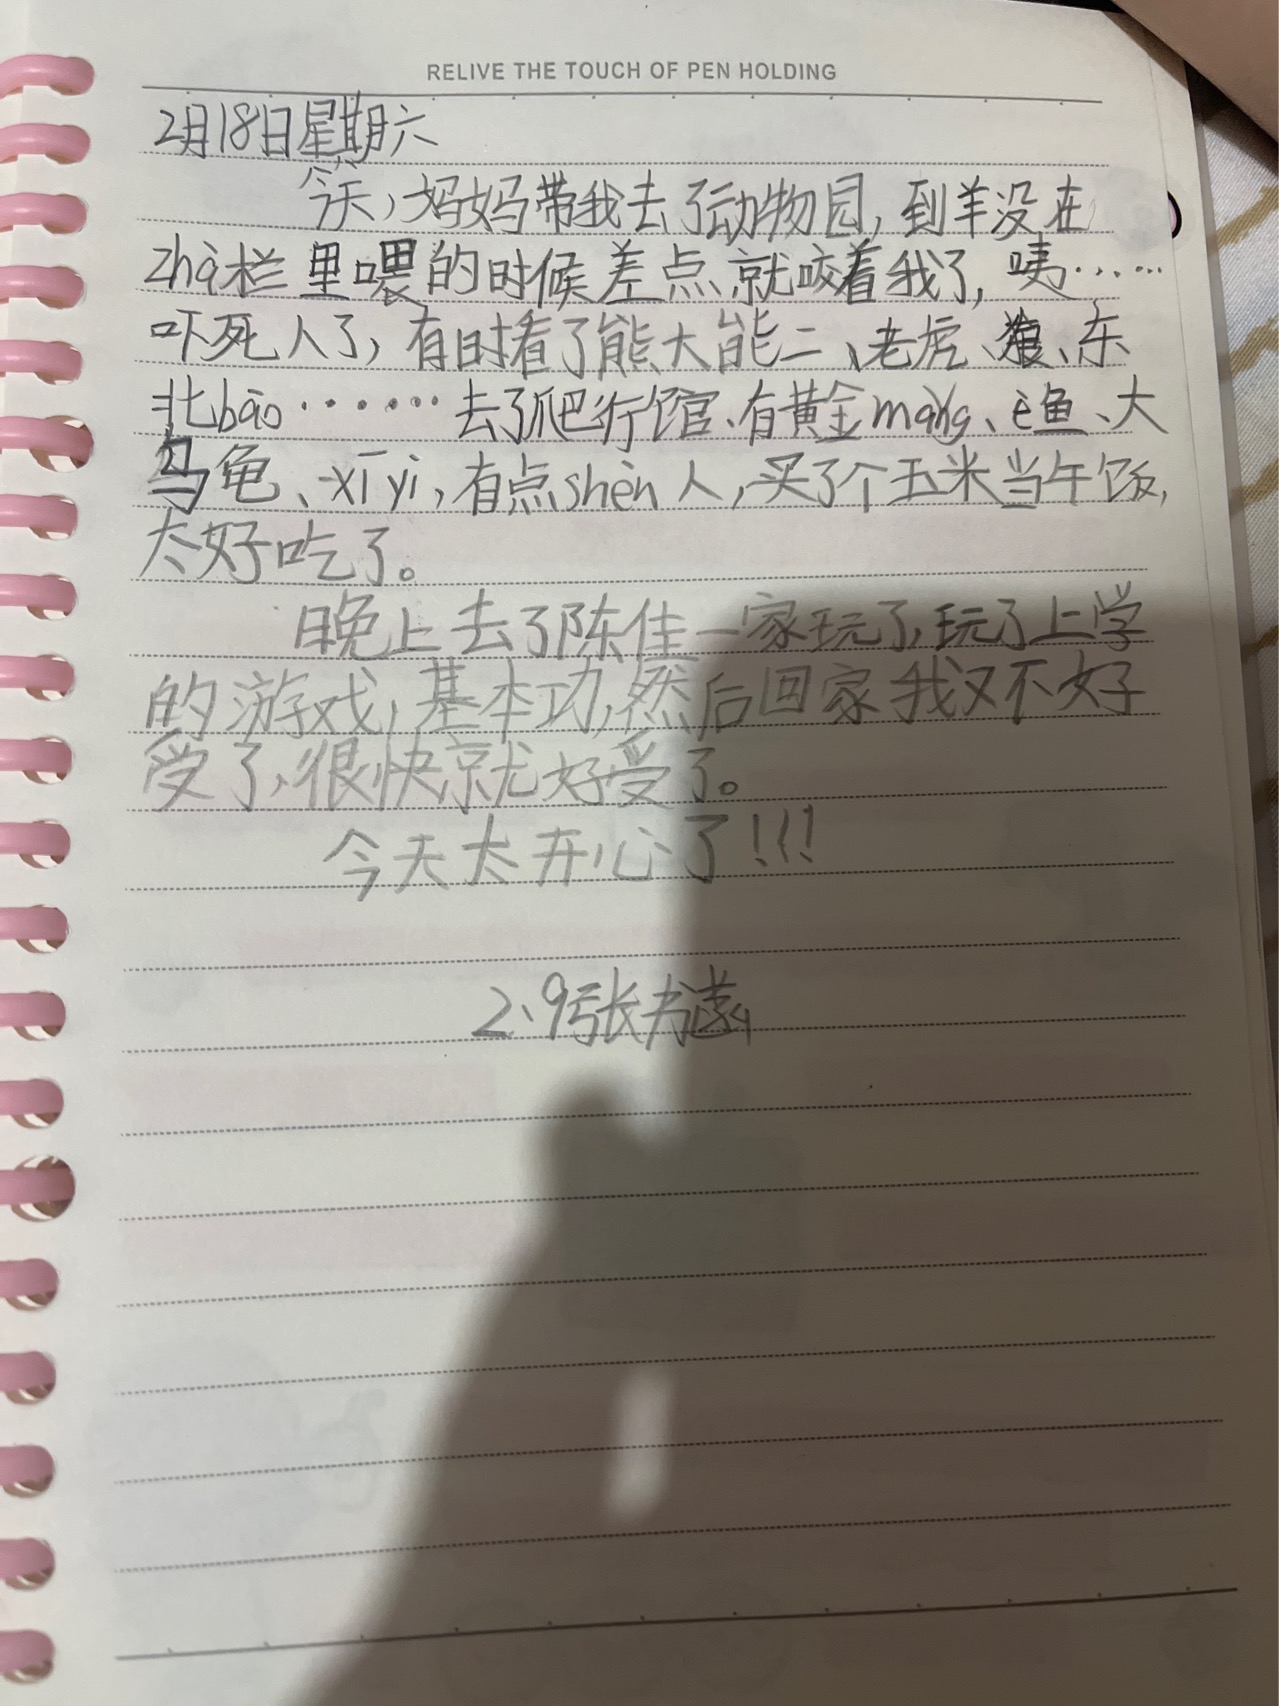 RELIVE THE TOUCH OF PEN HOLDING
2月18日星期六
今天,妈妈带我去了动物园,到羊没在
zhà栏里喂的时候差点就咬着我了,咦……
吓死人了,有时看了熊大能二、老虎、狼、东
北bào……去了爬行馆、有黄金mǎng、è鱼、大
乌龟、xī yì,有点shèn人,买了个玉米当午饭,
太好吃了。
晚上去了陈佳一家玩了,玩了上学
的游戏,基本功,然后回家我又不好
受了,很快就好受了。
今天太开心了!!!
2、9张书